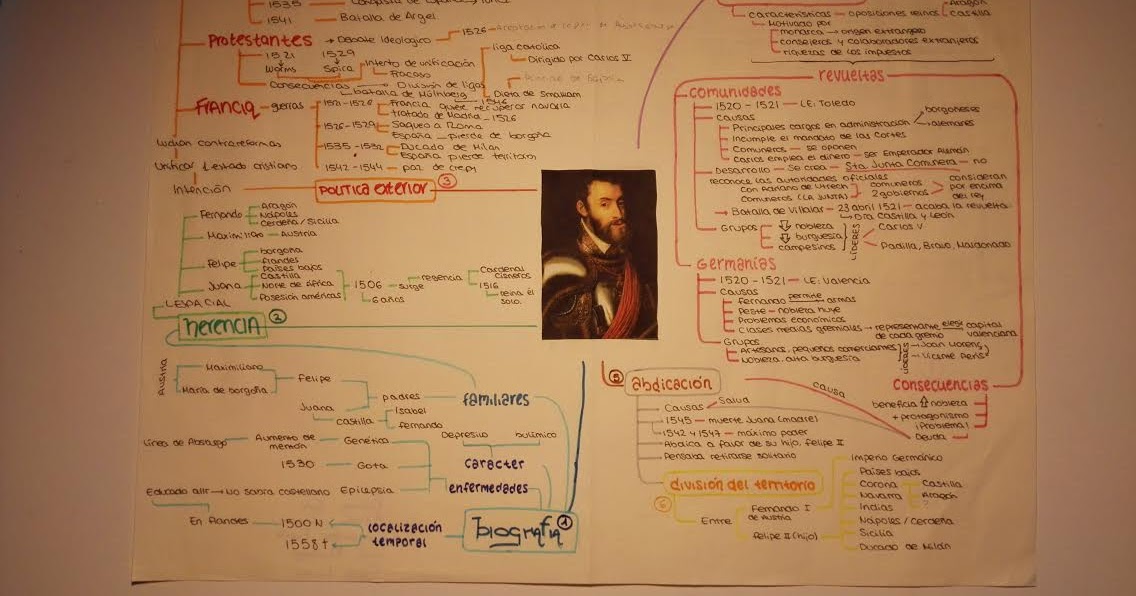 1535
1541 - Batalla de Argel
Protestantes → Debate Ideologico
1526
1521 1529
Worms Spira
Intento de unificación
Fracaso
liga catolica
Dirigido por Carlos V
Consecuencias División de ligas
batalla de Mülnberg 1546
Dieta de Smalkam
Francia - gerras
1521-1526 Francia quiere recuperar navarra
tratado de Madrid - 1526
1526-1529 Saqueo a Roma
España - pierde de borgoña
1535-1532 Ducado de Milan
España pierde territorio
1542-1544 - paz de crepy
luchan contrareformas
Unificar 1 estado cristiano
Intención
POLITICA exterior 3
Fernando
Aragón
Nápoles
Cerdeña/Sicilia
Maximiliano - Austria
Felipe
borgoña
flandes
Países bajos
Juana
Castilla
Norte de África
Posesión américas
1506 - surge regencia
6 años
Cardenal Cisneros
1516
reina él solo.
LESPACIAL
herencia 2
Austria
Maximiliano
María de borgoña
Felipe
Juana
padres
castilla
Isabel
fernando
familiares
línea de Austrago
Aumento de menton
Genética
Depresivo bulímico
1530 - Gota
caracter
Educado allí → No sabra castellano Epilepsia
enfermedades
En flandes 1500 N
1558 †
localización temporal
biografia 1
características - oposiciones reinos
Aragón
Castilla
Motivado por
monarca → origen extrangero
consejeros y colaboradores extranjeros
riquezas de los impuestos
revueltas
comunidades
1520 - 1521 - LE: Toledo
causas
Principales cargos en administración
borgoneses
alemanes
Incumple el mandato de las Cortes
Comuneros - se oponen
Carlos emplea el dinero - ser Emperador Alemán
Desarrollo - Se crea - Sta Junta Comunera - no
reconoce las autoridades oficiales
Con Adriano de Utrech
Comuneros (LA JUNTA)
comuneros
2 gobiernos
consideran por encima del rey
→ Batalla de Villalar - 23 abril 1521 - acaba la revuelta
Dra Castilla y León
Grupos
⇩ nobleza
⇩ burguesia
campesinos
LÍDERES
Carlos V
Padilla, Bravo, Maldonado
Germanías
1520 - 1521 - LE: Valencia
Causas
Fernando permite armas
Peste - nobleza huye
Problemas económicos
Clases medias gremiales → representante elegi capitos
de cada gremio valenciana
Grupos
Artesanos, pequeños comerciantes
Nobleza, alta burguesia
LÍDERES
Joan Llorenç
Vicente Peris
consecuencias
beneficia ⇧ nobleza
+ protagonismo
¡Problema!
Deuda
causa
5 abdicación
Causas - Salud
1545 - muerte Juana (madre)
1542 y 1547 - máximo poder
Abdica a favor de su hijo, Felipe II
Pensaba retirarse solitario
división del territorio
6
Entre
Fernando I de Austria
felipe II (hijo)
Imperio Germánico
Países bajos
Corona
Castilla
Aragón
Navarra
Indias
Nápoles / cerdeña
Sicilia
Ducado de Milán